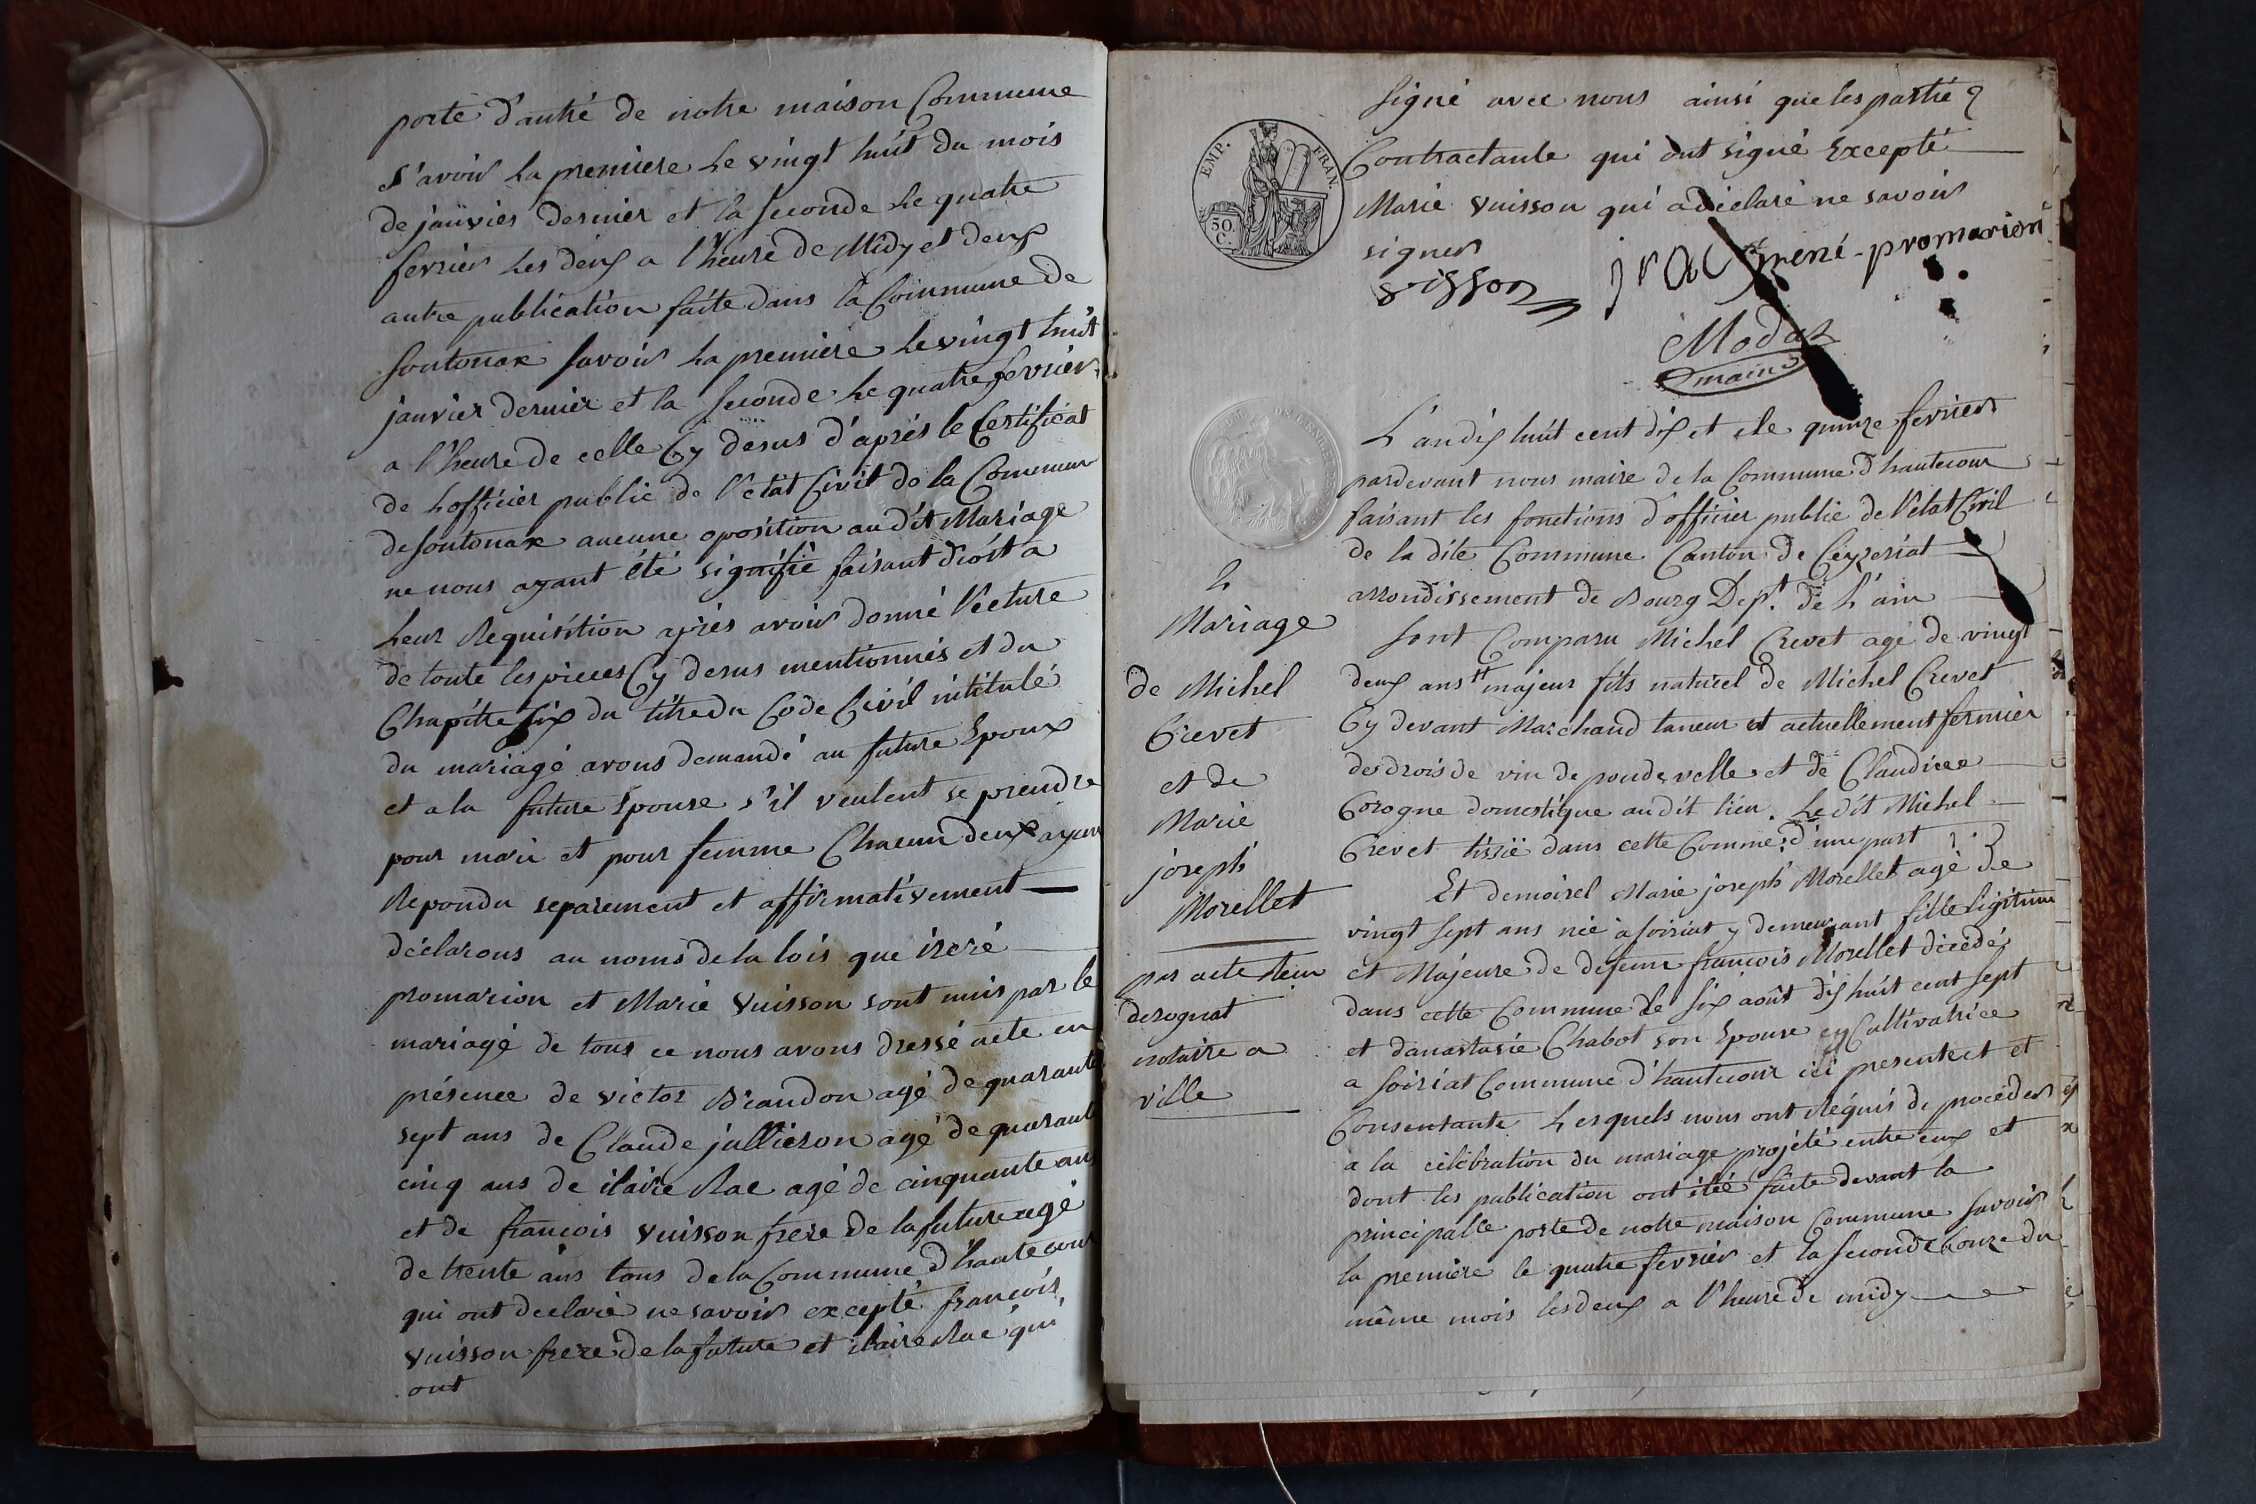 porte d'antré de notre maison Commune
s'avoir la premiere le vingt huit du mois
de janvier dernier et la seconde le quatre
fevrier les deux a l'heure de Midy et deux
autre publication faite dans la Commune de
Sontonax savoir la premiere le vingt huit
janvier dernier et la seconde le quatre fevrier
a l'heure de celle Cy desus d'après le Certificat
de l'officier public de l'état Civil de la Commune
de Sontonax aucune oposition audit Mariage
ne nous ayant été signifié faisant droit a
leur Requisition après avoir donné lecture
de toute les pieces Cy desus mentionnés et du
Chapitre six du titre du Code Civil intitulé
du mariage avons demandé au future Epoux
et a la future Epouse s'il veulent se prendre
pour mari et pour femme Chacun deux ayant
Repondu separement et affirmativement
déclarons au noms de la lois que irené
promarion et Marie Vuisson sont unis par le
mariage de tous ce nous avons dressé acte en
présence de victor Brandon agé de quarante
sept ans de Claude jullieron agé de quarante
cinq ans de ilaire Rac agé de cinquante ans
et de françois Vuisson frere de la future agé
de trente ans tous de la Commune d'hautecour
qui ont declaré ne savoir excepté françois
Vuisson frere de la future et ilaire Rac qui
ont
signé avec nous ainsi que les partie
Contractante qui ont signé Excepté
Marie Vuisson qui a déclaré ne savoir
signer
EMP. FRAN.
50 C.
visson irené-promarion
Modas
maire
L'an dix huit cent dix et le quinze fevrier
pardevant nous maire de la Commune d'hautecour
faisant les fonctions d'officier public de l'état Civil
de la dite Commune Canton de Ceyzeriat
arrondissement de Bourg Dept. de L'ain
Sont Comparu Michel Crevet agé de vingt
deux ans majeur fils naturel de Michel Crevet
Cy devant Marchand taneur et actuellement fermier
des drois de vin de pondevelle et de Claudine
Corogne domestique audit lieu. Le dit Michel
Crevet dans cette Comme. d'une part
Et demoisel Marie joseph Morellet agé de
vingt sept ans née à soiriat y demeurant fille legitime
et Majeure de defunt françois Morellet décédé
dans cette Commune le six août dix huit cent sept
et d'anastasie Chabot son Epouse Cultivatrice
a soiriat Commune d'hautecour ici presente et
Consentante Lesquels nous ont Réquis de procéder
a la célébration du mariage projété entre eux et
dont les publication ont été faite devant la
principalle porte de notre maison Commune savoir
la premiere le quatre fevrier et la seconde honze du
même mois les deux a l'heure de midy
2
Mariage
de Michel
Crevet
et de
Marie
joseph
Morellet
par acte
derognat
notaire a
ville